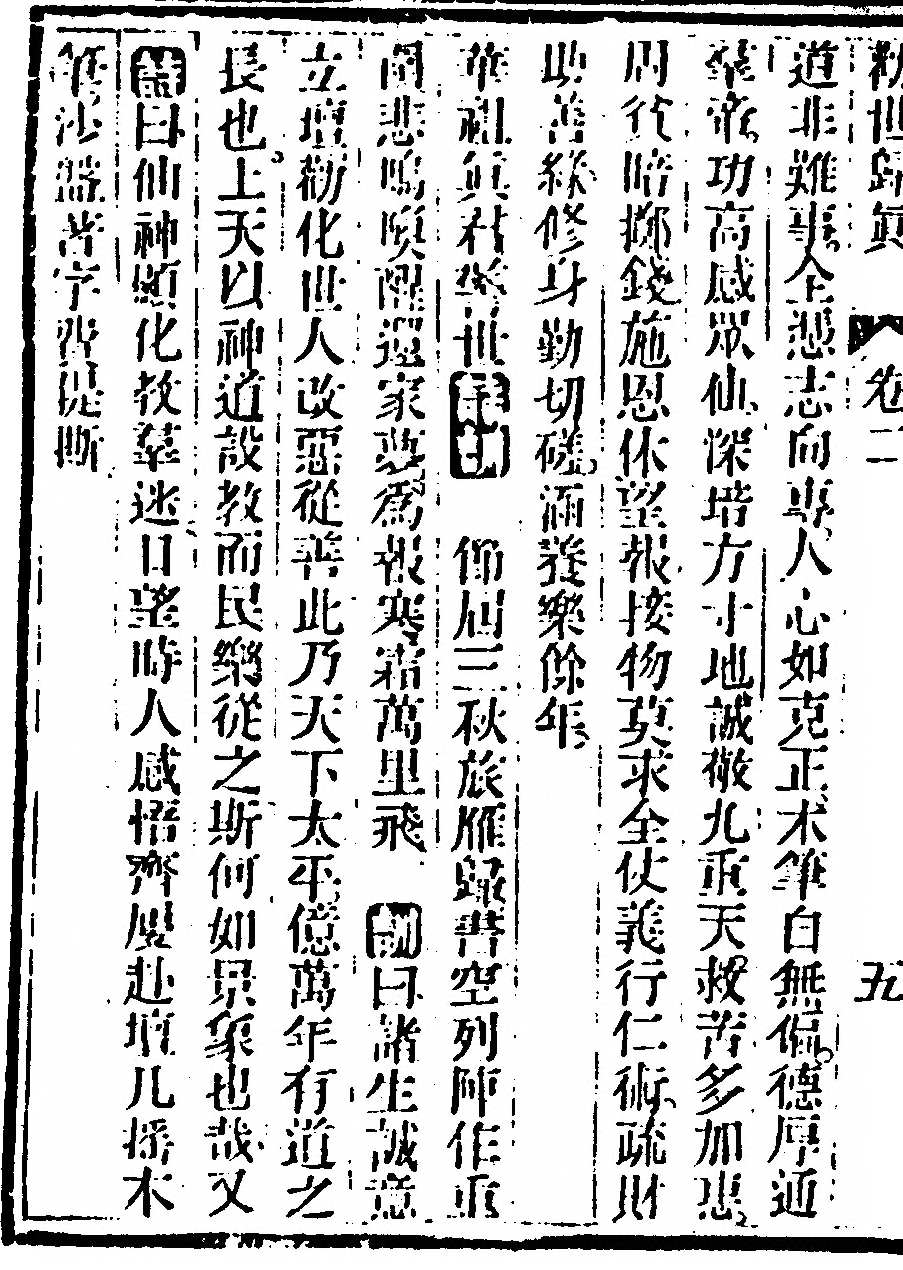 勸世歸真 卷二 五
道非難事全憑志向專人心如克正木筆自無偏德厚通
羣帝功高感眾仙深培方寸地誠敬九重天救苦多加惠
周貧暗擲錢施恩休望報接物莫求全仗義行仁術疏財
助善緣修身勤切磋涵養樂餘年
華祖真君警世 節屆三秋旅雁歸書空列陣作重
圍悲鳴喚醒還家夢為報寒霜萬里飛 曰諸生誠意
立壇勸化世人改惡從善此乃天下太平億萬年有道之
長也上天以神道設教而民樂從之斯何如景象也哉又
曰仙神顯化教羣迷日望時人感悟齊屢赴壇几搖木
筆沙盤書字費提撕